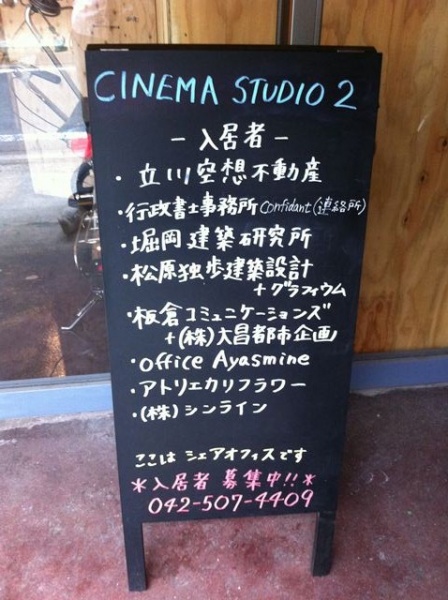 CINEMA STUDIO 2
－入居者－
・立川空想不動産
・行政書士事務所 Confidant (連絡所)
・堀岡建築研究所
・松原独歩建築設計
+グラフィウム
・板倉コミュニケーションズ
+(株)大昌都市企画
・office Ayasmine
・アトリエカリフラワー
・(株)シンライン
ここは シェアオフィスです
*入居者 募集中!!*
042-507-4409